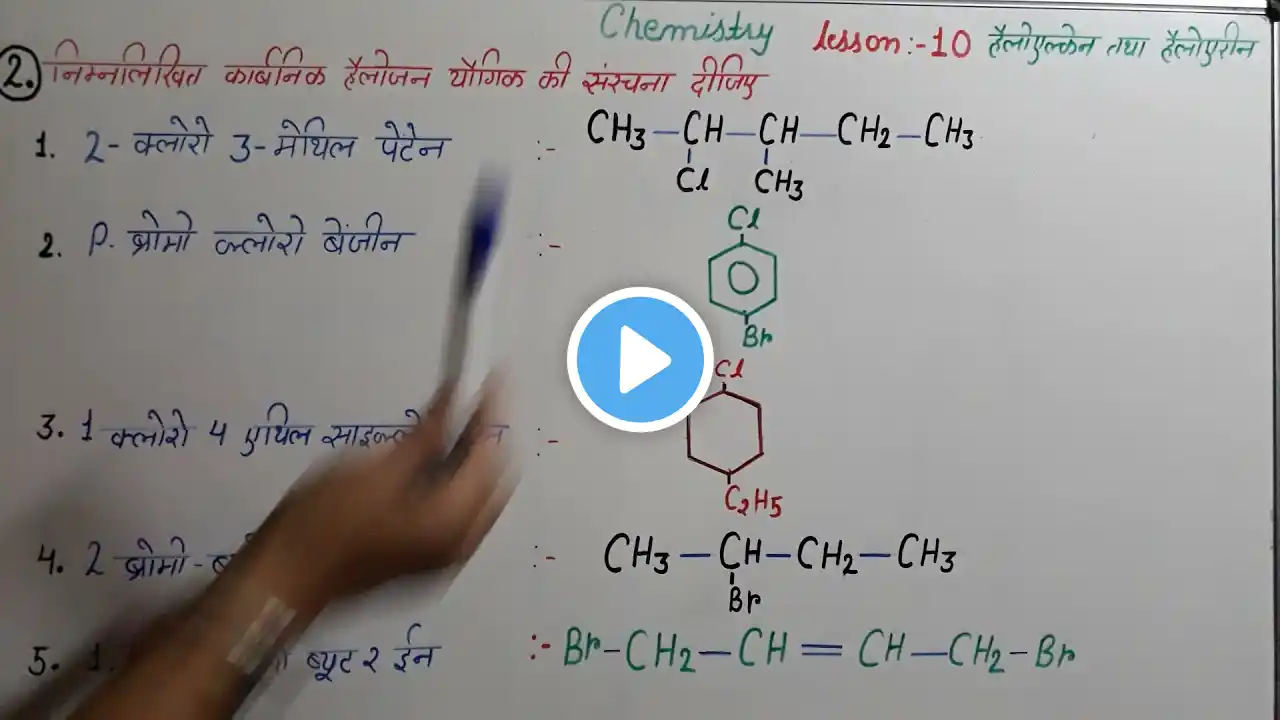 Chemistry lesson:-10 हैलोएल्केन तथा हैलोएरीन
2. निम्नलिखित कार्बनिक हैलोजन यौगिक की संरचना दीजिए
1. 2-क्लोरो 3-मेथिल पेंटेन :- CH3—CH—CH—CH2—CH3
Cl CH3
2. P. ब्रोमो क्लोरो बेंजीन :-
Cl
Br
3. 1 क्लोरो 4 एथिल :-
Cl
C2H5
4. 2 ब्रोमो- :- CH3—CH—CH2—CH3
Br
5. 1. ब्यूट 2 ईन :- Br-CH2—CH=CH—CH2-Br